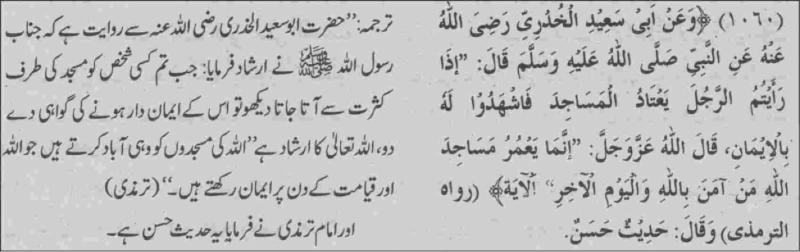 (١٠٦٠) ﴿وَعَنْ اَبِیْ سَعِیْدِ الْخُدْرِیِّ رَضِیَ اللّٰهُ
عَنْهُ عَنِ النَّبِیِّ صَلَّی اللّٰهُ عَلَیْهِ وَسَلَّمَ قَالَ: "إذَا
رَأَیْتُمُ الرَّجُلَ یَعْتَادُ الْمَسَاجِدَ فَاشْهَدُوْا لَهُ
بِالْاِیْمَانِ، قَالَ اللّٰهُ عَزَّوَجَلَّ: "اِنَّمَا یَعْمُرُ مَسَاجِدَ
اللّٰهِ مَنْ آمَنَ بِاللّٰهِ وَالْیَوْمِ الْاٰخِرِ" اَلْاٰیَةَ﴾ (رواه
الترمذی) وَقَالَ: حَدِیْثٌ حَسَنٌ.
ترجمہ: "حضرت ابوسعید الخدری رضی اللہ عنہ سے روایت ہے کہ جناب
رسول اللہ ﷺ نے ارشاد فرمایا: جب تم کسی شخص کو مسجد کی طرف
کثرت سے آتا جاتا دیکھو تو اس کے ایمان دار ہونے کی گواہی دے
دو، اللہ تعالیٰ کا ارشاد ہے "اللہ کی مسجدوں کو وہی آباد کرتے ہیں جو اللہ
اور قیامت کے دن پر ایمان رکھتے ہیں۔" (ترمذی)
اور امام ترمذی نے فرمایا یہ حدیث حسن ہے۔